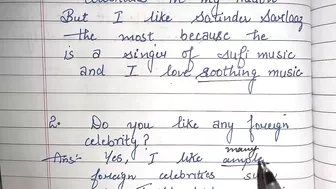 in my nation
But I like Satinder Sartaaj
the most because he
is a singer of sufi music
and I love soothing music
2. Do you like any foreign
celebrity?
Ans: Yes, I like many ample
foreign celebrities